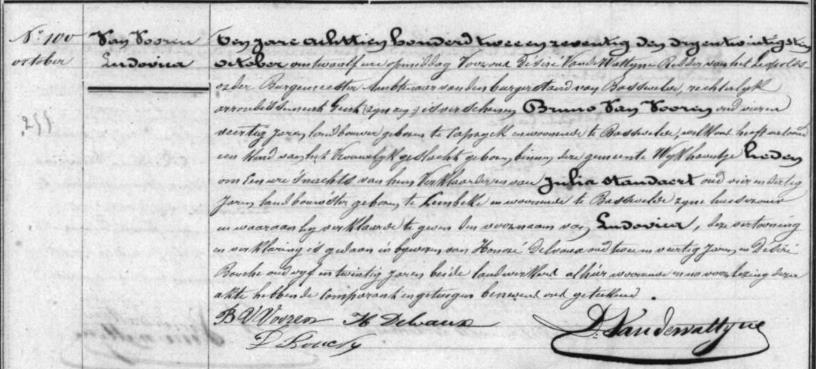 N.º 100
october
Van Vooren
Ludovica
Ten jare achttien honderd twee en zeventig den dryentwintigsten
october om twaalf ure middag Voor ons Désiré Vande Wattyne Ridder van het Leopolds
order Burgemeester Ambtenaar van den burgerstand van Bassevelde, rechterlyk
arrondissement Gent zyn verschenen Bruno Van Vooren oud vier en
veertig jaren landbouwer geboren te Caprycke en woonende te Bassevelde, welkons heeft vertoond
een kind van het Vrouwelyk geslacht geboren binnen deze gemeente Wyk heden
om een ure snachts van hem Verklaarder en van Julia Standaert oud vier en dertig
jaren landbouwster geboren te Lembeke en woonende te Bassevelde zyne huisvrouw
en waaraan hy verklaarde te geven den voornaam van Ludovica, deze vertooning
en verklaring is gedaan in bywezen van Honoré Delvaux oud twee en veertig jaren, en Désiré
oud vyf en twintig jaren beide alhier woonende en na voorlezing dezer
akte hebben de comparant en getuigen benevens ons geteekend.
B V Vooren H Delvaux
D. Vandewattyne